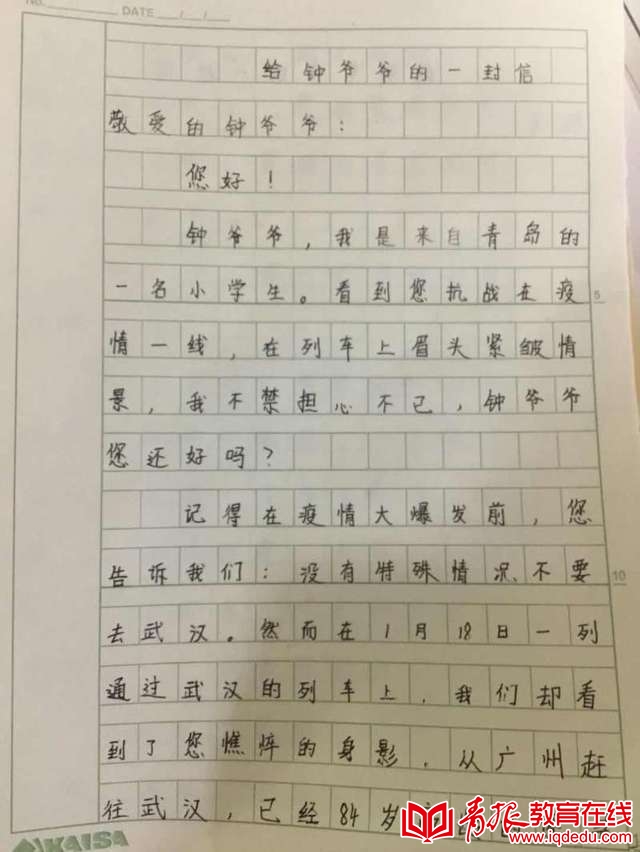 No.
DATE / /
给钟爷爷的一封信
敬爱的钟爷爷：
您好！
钟爷爷，我是来自青岛的
一名小学生。看到您抗战在疫
情一线，在列车上眉头紧皱情
景，我不禁担心不已，钟爷爷
您还好吗？
记得在疫情大爆发前，您
告诉我们：没有特殊情况、不要
去武汉。然而在1月18日一列
通过武汉的列车上，我们却看
到了您憔悴的身影，从广州赶
往武汉，已经84岁
5
10
KAISA
青报教育在线
www.iqdedu.com